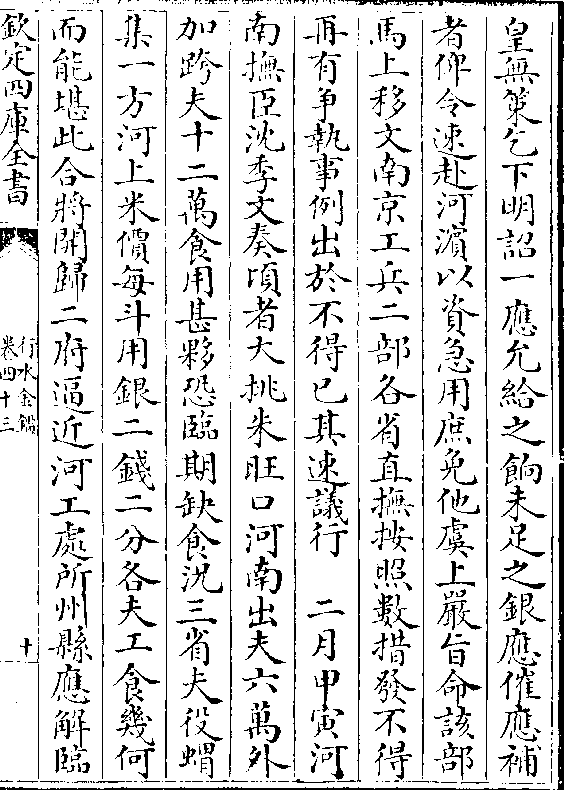 皇無策乞下明詔一應允給之餉未足之銀應催應補
者俾令速赴河濱以資急用庶免他虞上嚴旨命該部
馬上移文南京工兵二部各省直撫按照數措發不得
再有争執事例出於不得已其速議行　二月甲寅河
南撫臣沈季文奏頃者大挑朱旺口河南出夫六萬外
加跨夫十二萬食用甚夥恐臨期缺食況三省夫役蝟
集一方河上米價每斗用銀二錢二分各夫工食幾何
而能堪此合將開歸二府逼近河工處所州縣應解臨
欽定四庫全書
行水金鑑
卷四十三
十